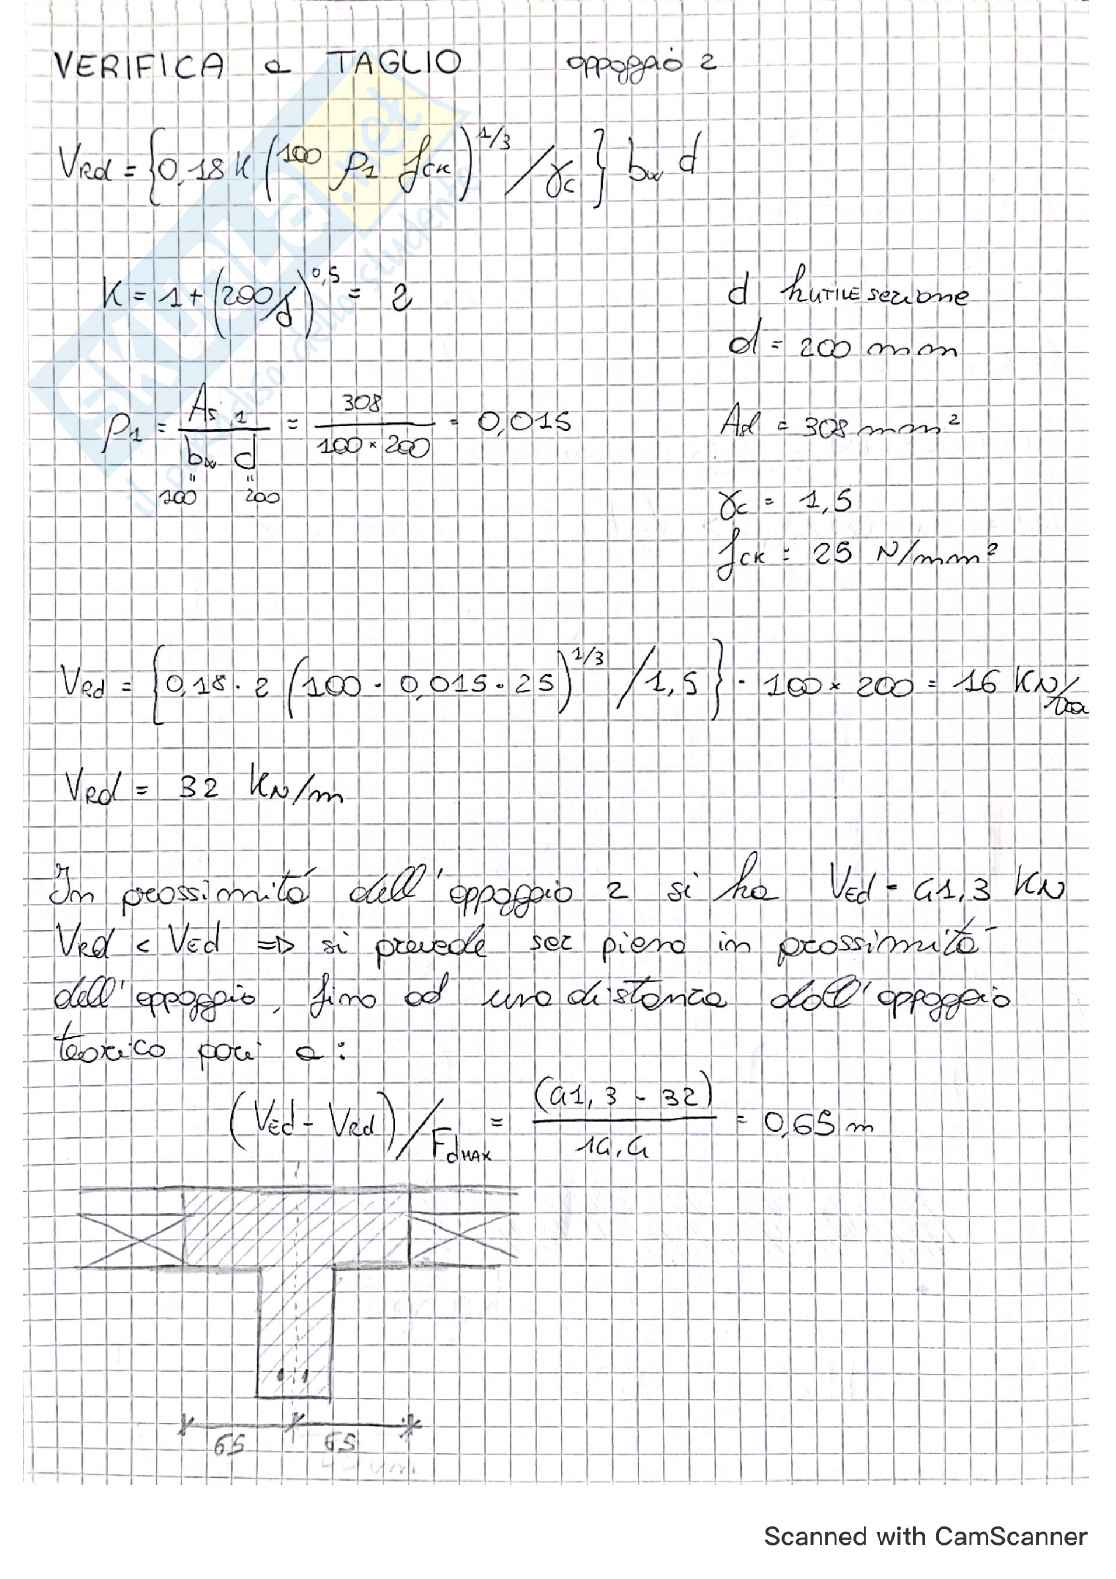 VERIFICA a TAGLIO appoggio 2
VRd = {0,18 K (100 ρ1 fck)^1/3 / γc} bw d
K = 1 + (200/d)^0,5 = 2
d hUTILE sezione
d = 200 mm
ρ1 = As,1 / bw d = 308 / 100 × 200 = 0,015
100 200
Ad = 308 mm²
γc = 1,5
fck = 25 N/mm²
VRd = {0,18 · 2 (100 · 0,015 · 25)^1/3 / 1,5} · 100 × 200 = 16 KN/
VRd = 32 KN/m
In prossimità dell'appoggio 2 si ha VEd = 41,3 KN
VRd < VEd => si prevede ser pieno in prossimità
dell'appoggio, fino ad una distanza dall'appoggio
teorico pari a:
(VEd - VRd) / FdMAX = (41,3 - 32) / 14,4 = 0,65 m
65 65
Scanned with CamScanner